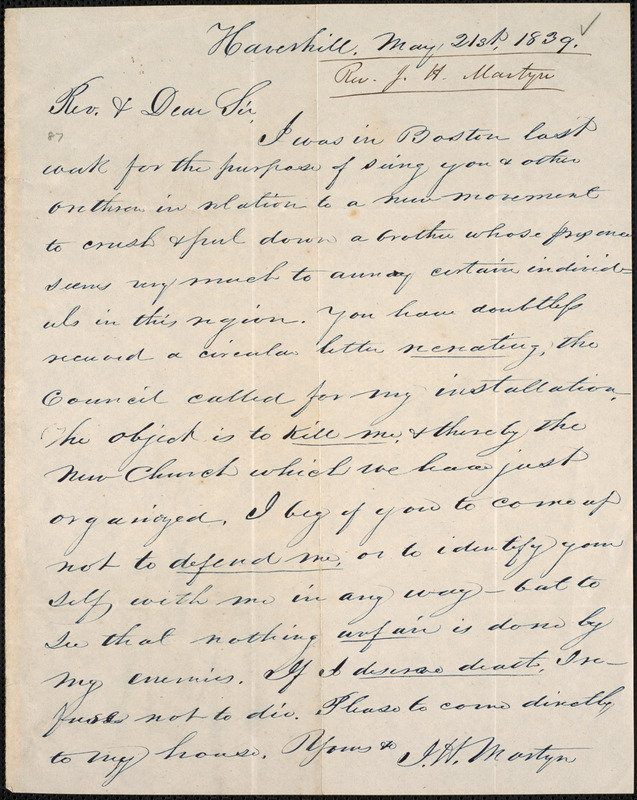 Haverhill, May, 21st, 1839.
Rev. J. H. Martyn
Rev. & Dear Sir,
87
I was in Boston last
week for the purpose of seing you & other
brethren in relation to a new movement
to crush & put down a brother whose presence
seems very much to annoy certain individ=
uls in this region. You have doubtless
received a circular letter recreating, the
Council called for my installation.
The object is to kill me, & thereby the
New Church which we have just
organized. I beg of you to come up
not to defend me, or to identify your
self with me in any way – but to
see that nothing unfair is done by
my enemies. If I deserve deat, I re-
fuse not to die. Please to come directly
to my house. Yours &
J. H. Martyn